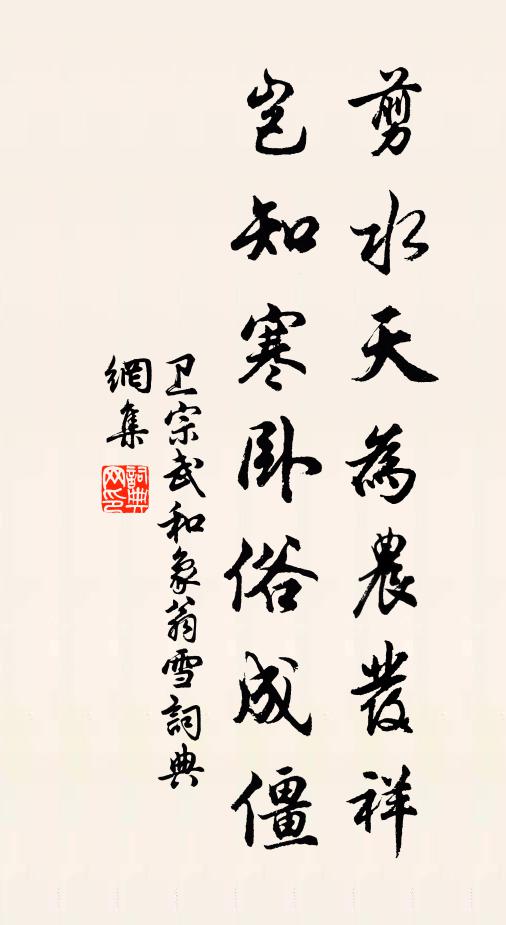 剪水天為農發祥
岂知寒卧俗成僵
卫宗武和象翁雪詞典
網集
詞典
网印